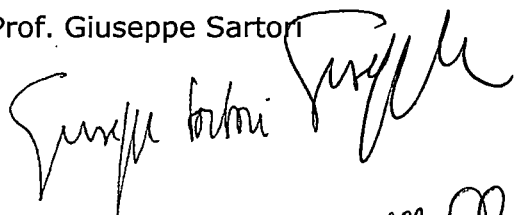 Prof. Giuseppe Sartori
Giuseppe Sartori Giuseppe